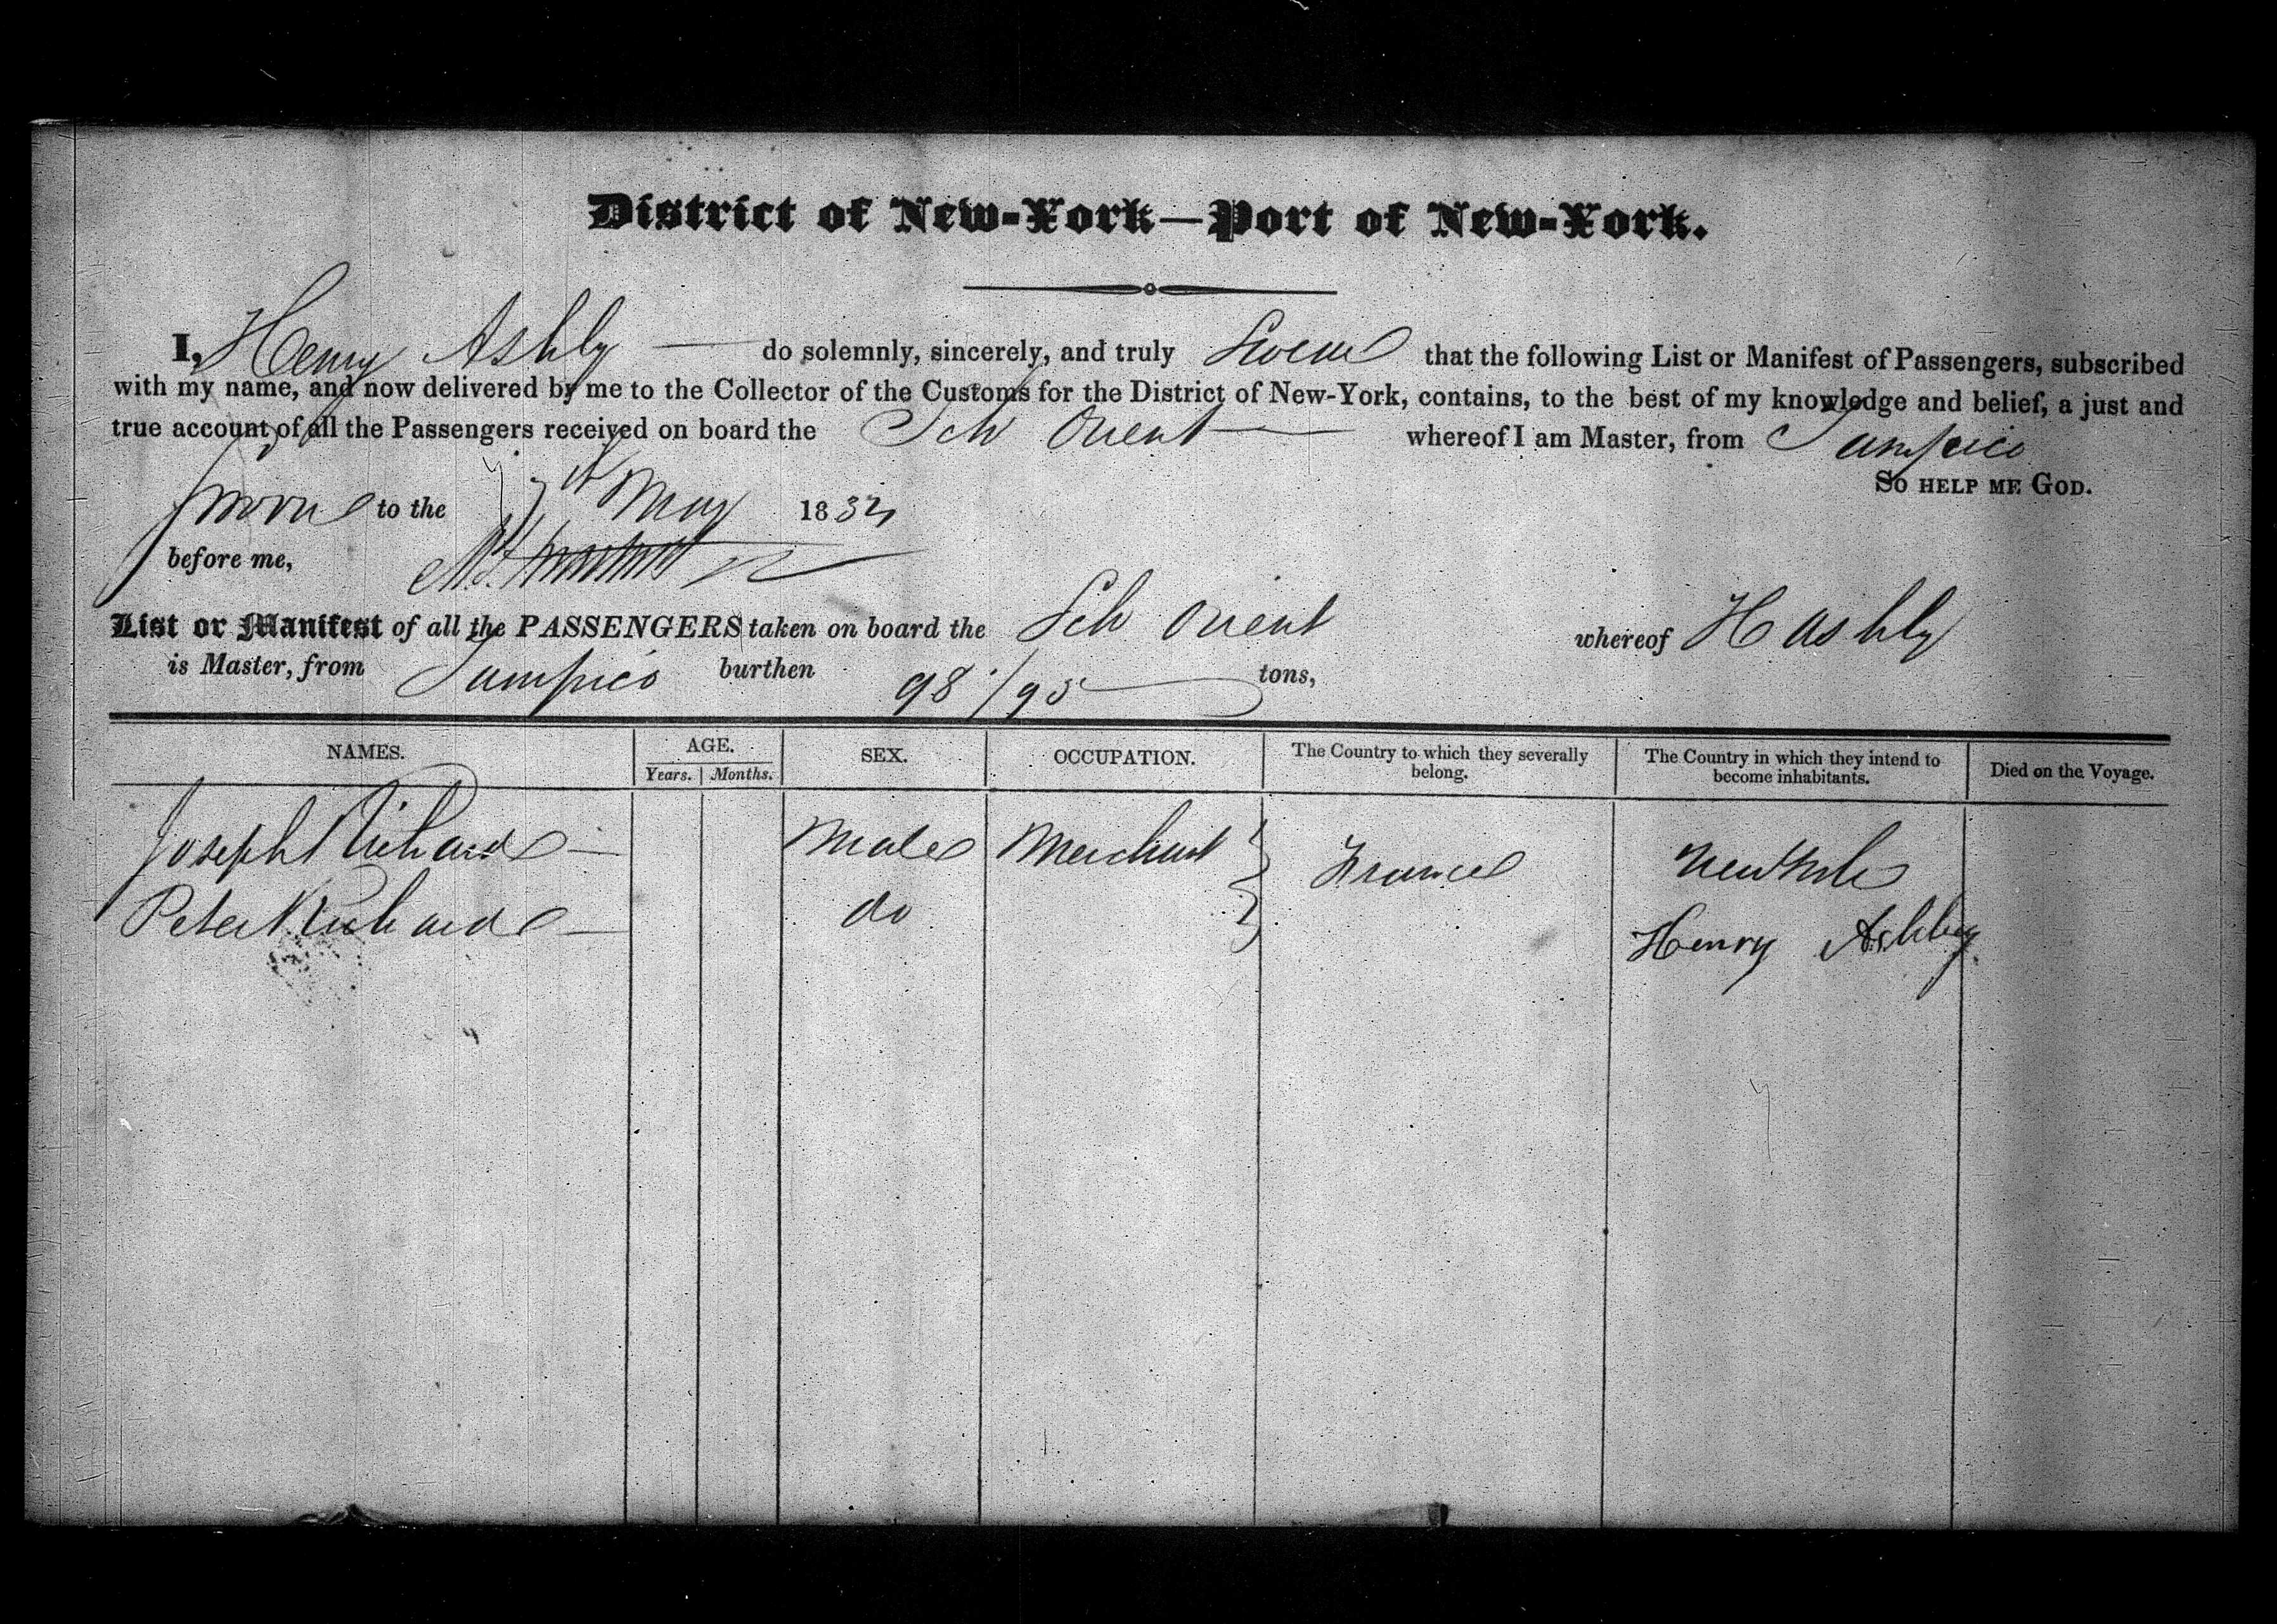 District of New-York—Port of New-York.
I, Henry Ashby do solemnly, sincerely, and truly Swear that the following List or Manifest of Passengers, subscribed
with my name, and now delivered by me to the Collector of the Customs for the District of New-York, contains, to the best of my knowledge and belief, a just and
true account of all the Passengers received on board the Sch Orient whereof I am Master, from Tampico
So help me God.
Sworn to the 7th May 183
before me,
List or Manifest of all the PASSENGERS taken on board the Sch Orient whereof H Ashby
is Master, from Tampico burthen 98 /95 tons,
NAMES. AGE. SEX. OCCUPATION. The Country to which they severally belong. The Country in which they intend to become inhabitants. Died on the Voyage.
Years. Months.
Joseph Richard Male Merchant France New York
Peter Richard do
Henry Ashby